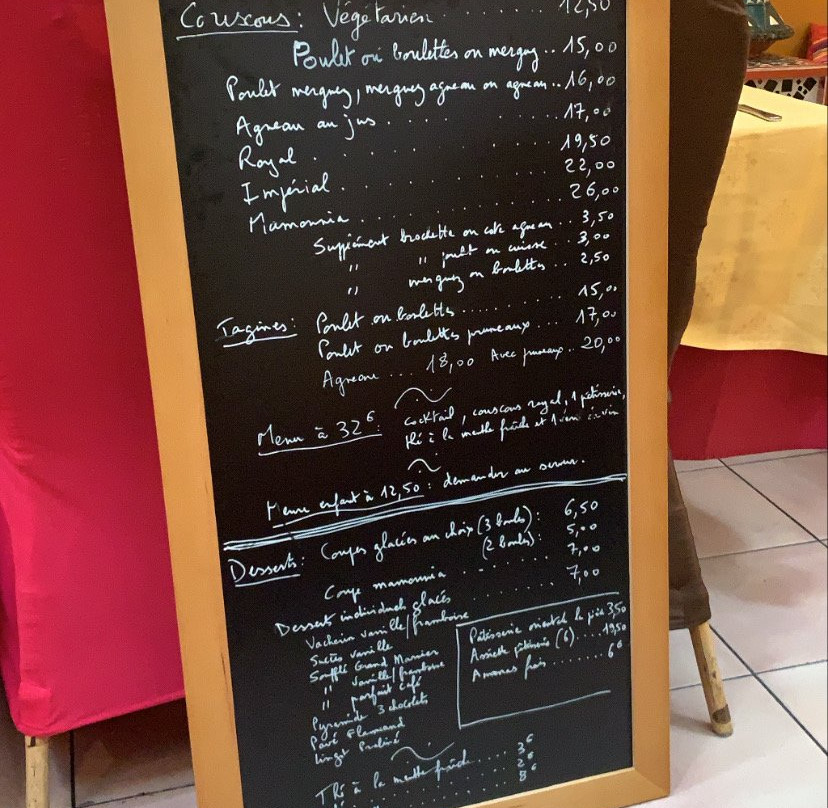 Couscous : Végétarien . . . . . . 12,50
Poulet ou boulettes ou merguez .. 15,00
Poulet merguez, merguez agneau ou agneau .. 16,00
Agneau au jus . . . . . . 17,00
Royal . . . . . . 19,50
Impérial . . . . . . 22,00
Mamounia . . . . . . 26,00
Supplément brochette ou cote agneau .. 3,50
" " poulet ou cuisse .. 3,00
" merguez ou boulettes .. 2,50
Tagines : Poulet ou boulettes . . . . . . 15,00
Poulet ou boulettes pruneaux ... 17,00
Agneau .... 18,00 Avec pruneaux .. 20,00
Menu à 32€ : Cocktail, couscous royal, 1 pâtisserie,
thé à la menthe fraîche et 1 verre de vin
Menu enfant à 12,50 : demander au serveur.
Desserts : Coupes glacées au choix (3 boules) : 6,50
(2 boules) : 5,00
Coupe mamounia . . . . . . 7,00
Dessert individuels glacés . . . . . . 7,00
Vacherin vanille/framboise
Succès vanille
Soufflé Grand Marnier
" vanille/framboise
" parfait café
Pyramide 3 chocolats
Pavé Flamand
Lingot Praliné
Pâtisserie orientale la pièce 3,50
Assiette pâtisserie (6) .... 19,50
Ananas frais ........ 6€
Thé à la menthe fraîche .... 3€
2€
8€